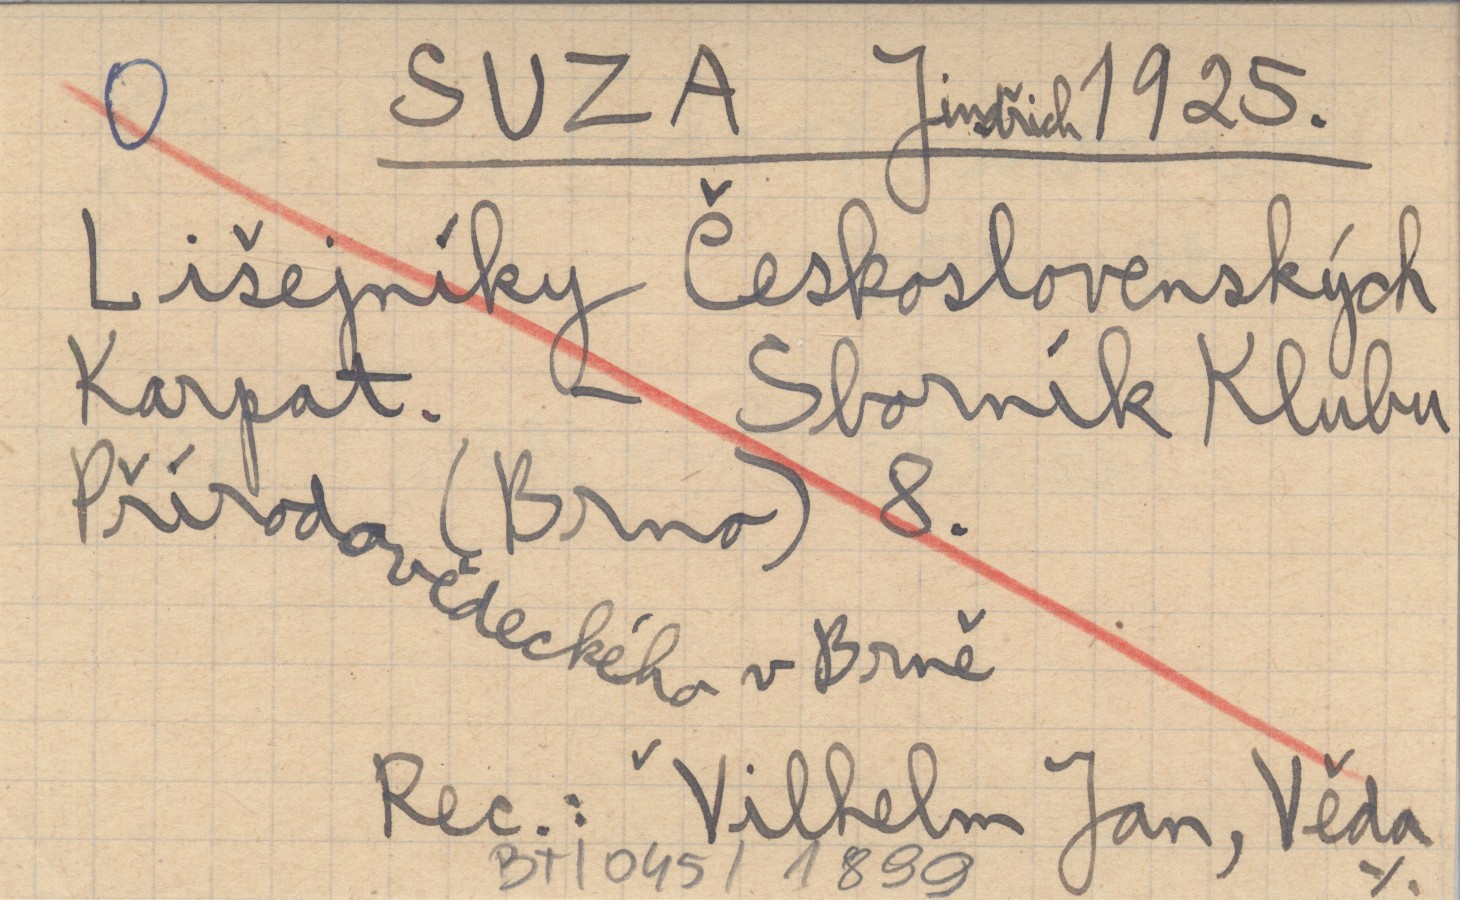 O SUZA Jindřich 1925.
Lišejníky Československých
Karpat. – Sborník Klubu
Přírodovědeckého v Brně (Brno) 8.
Rec.: Vilhelm Jan, Věda
BT/045/1899 ./.